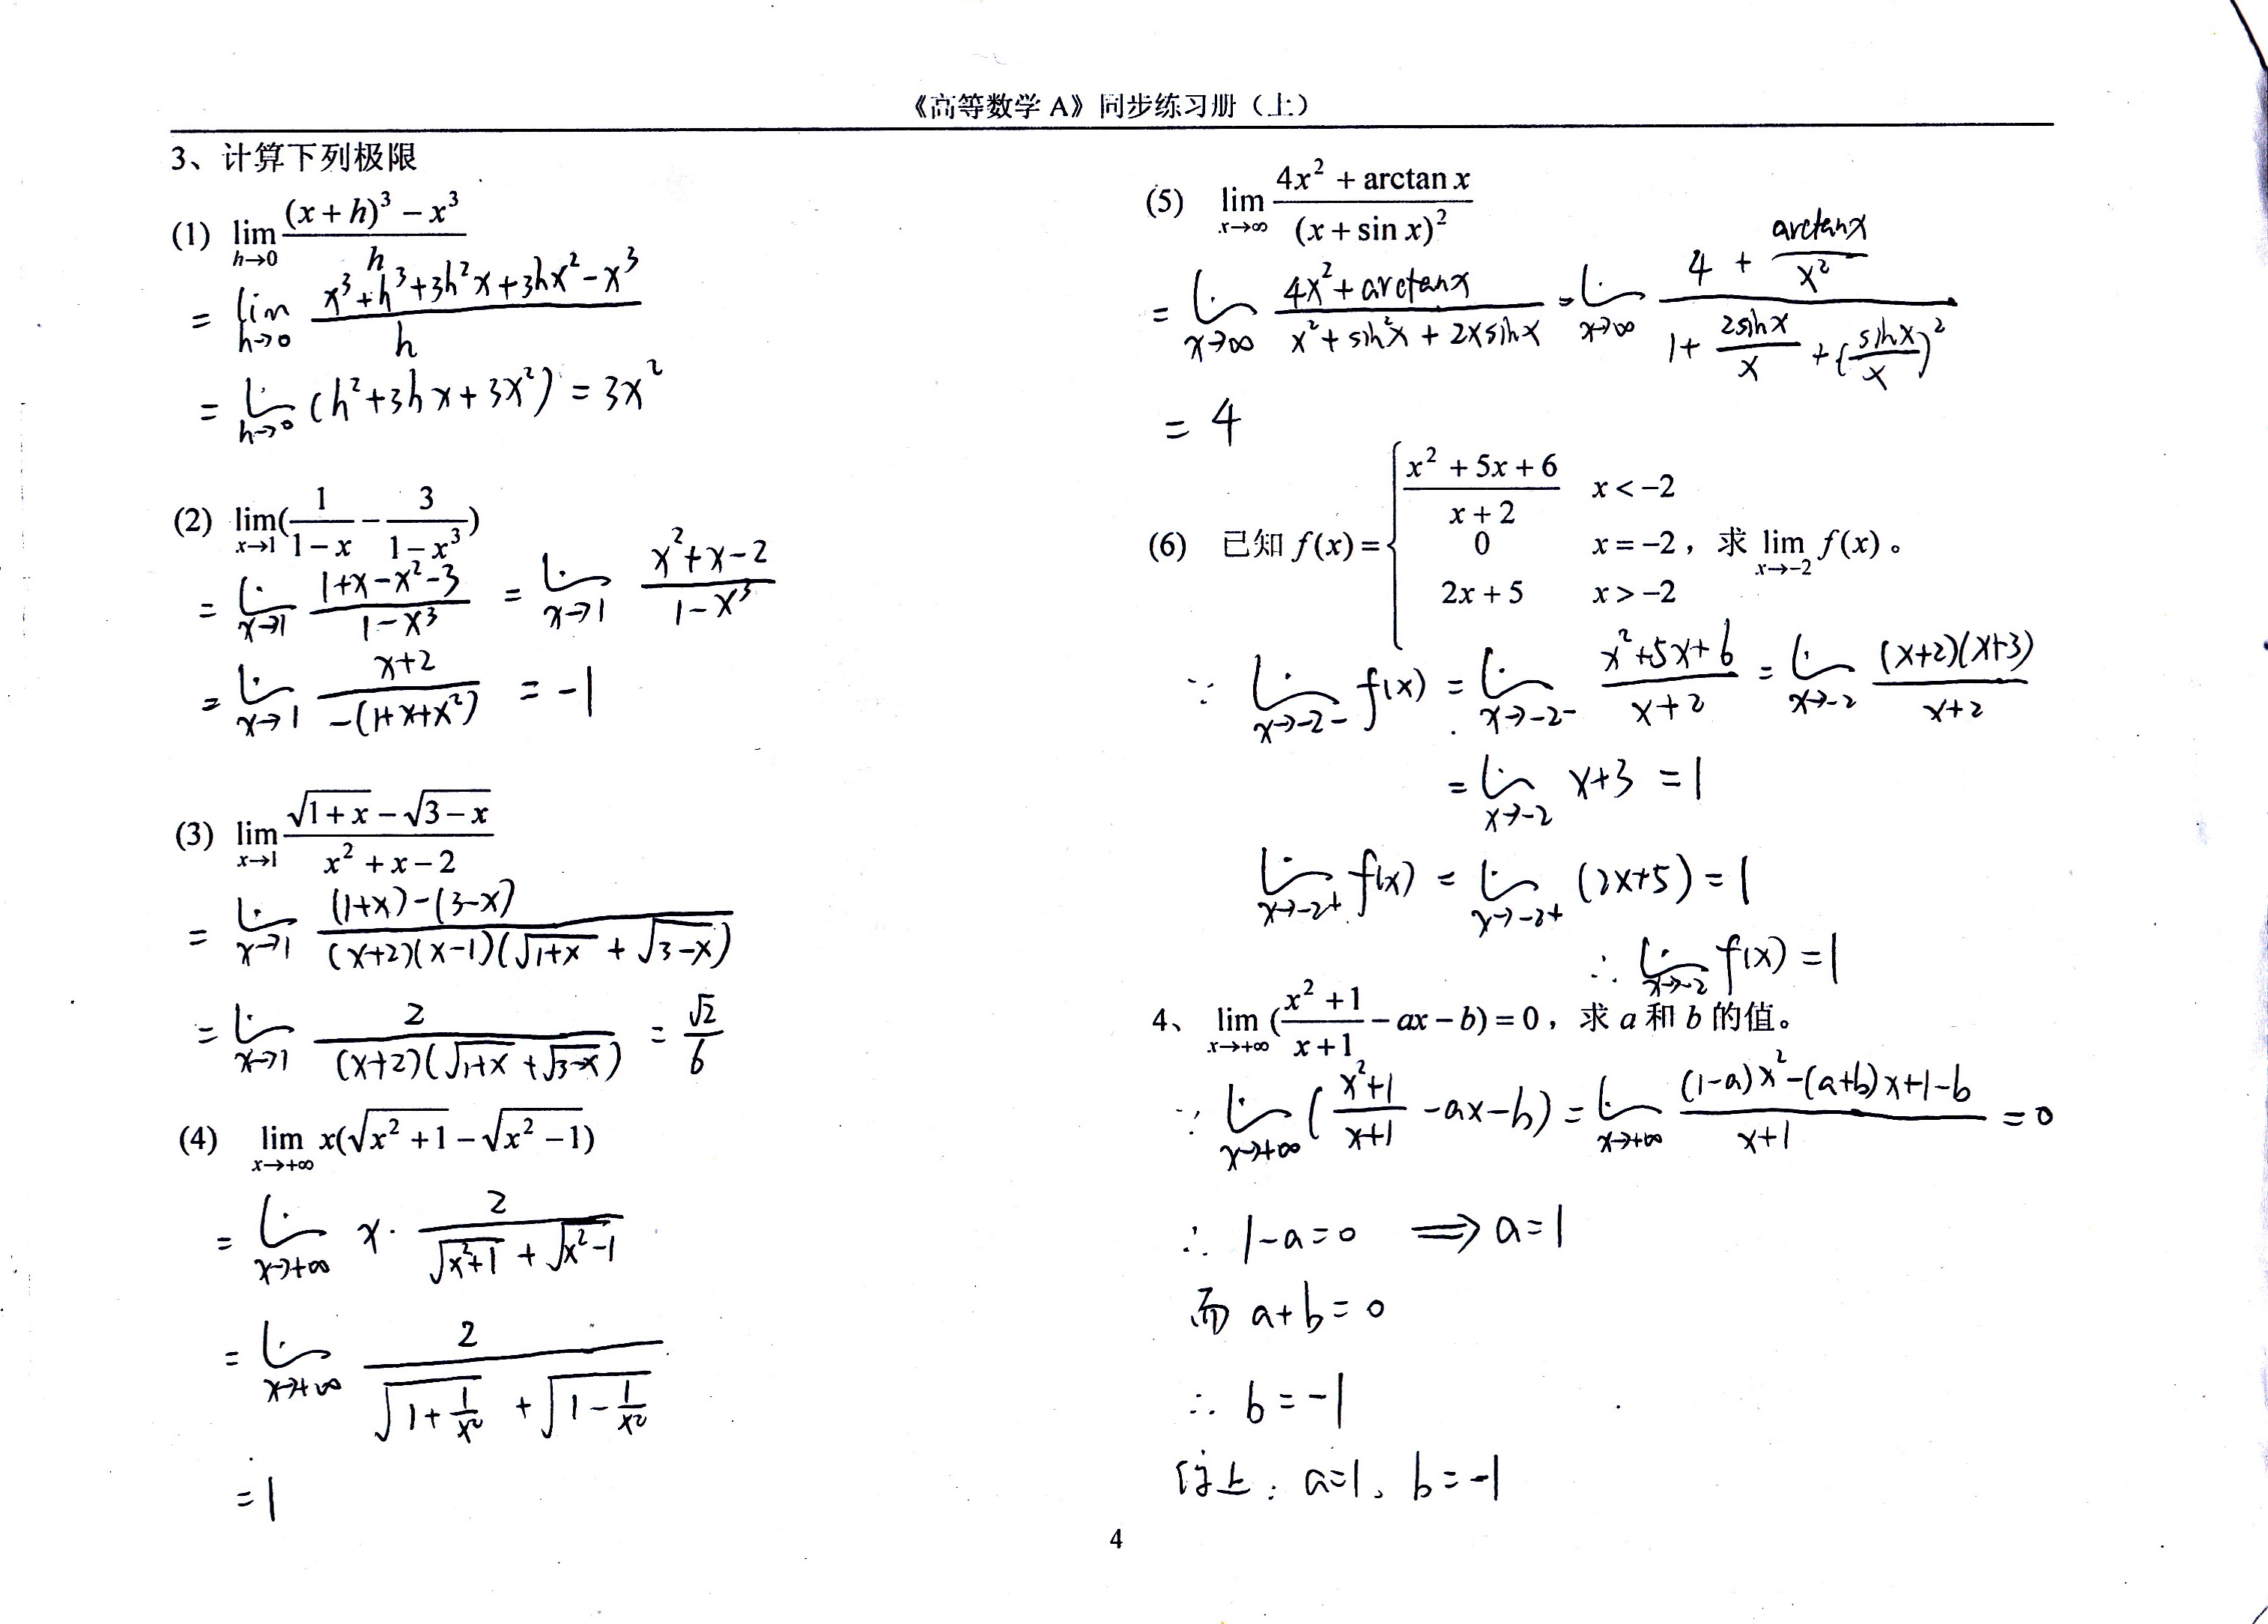 《高等数学 A》同步练习册（上）
3、计算下列极限
(1) lim_{h→0} ((x+h)³ − x³)/h
= lim_{h→0} (x³+h³+3h²x+3hx²−x³)/h
= lim_{h→0} (h²+3hx+3x²) = 3x²
(2) lim_{x→1} (1/(1−x) − 3/(1−x³))
= lim_{x→1} (1+x−x²−3)/(1−x³) = lim_{x→1} (x²+x−2)/(1−x³)
= lim_{x→1} (x+2)/(−(1+x+x²)) = −1
(3) lim_{x→1} (√(1+x) − √(3−x))/(x²+x−2)
= lim_{x→1} ((1+x)−(3−x))/((x+2)(x−1)(√(1+x) + √(3−x)))
= lim_{x→1} 2/((x+2)(√(1+x) + √(3−x))) = √2/6
(4) lim_{x→+∞} x(√(x²+1) − √(x²−1))
= lim_{x→+∞} x · 2/(√(x²+1) + √(x²−1))
= lim_{x→+∞} 2/(√(1+1/x²) + √(1−1/x²))
= 1
(5) lim_{x→∞} (4x² + arctan x)/(x + sin x)²
= lim_{x→∞} (4x²+arctanx)/(x²+sin²x+2xsinx) = lim_{x→∞} (4 + arctanx/x²)/(1 + 2sinx/x + (sinx/x)²)
= 4
(6) 已知 f(x) = { (x²+5x+6)/(x+2) x < −2
0 x = −2，求 lim_{x→−2} f(x)。
2x+5 x > −2
∵ lim_{x→−2−} f(x) = lim_{x→−2−} (x²+5x+6)/(x+2) = lim_{x→−2} (x+2)(x+3)/(x+2)
= lim_{x→−2} x+3 = 1
lim_{x→−2+} f(x) = lim_{x→−2+} (2x+5) = 1
∴ lim_{x→−2} f(x) = 1
4、 lim_{x→+∞} ((x²+1)/(x+1) − ax − b) = 0，求 a 和 b 的值。
∵ lim_{x→+∞} ((x²+1)/(x+1) −ax−b) = lim_{x→+∞} ((1−a)x²−(a+b)x+1−b)/(x+1) = 0
∴ 1−a=0 ⟹ a=1
而 a+b=0
∴ b=−1
综上：a=1、b=−1
4